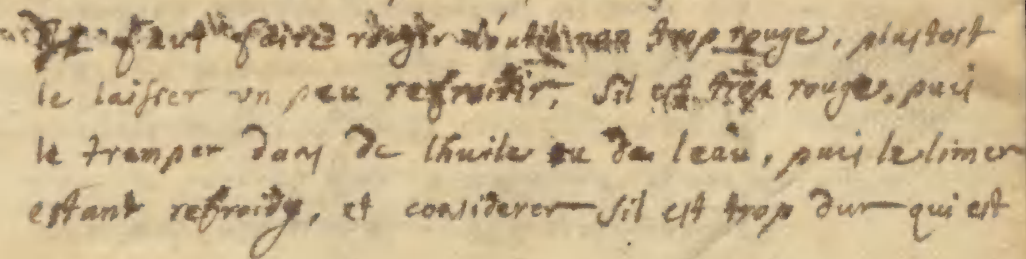 Il faut faire rougir l'outil non trop rouge, plustost
le laisser un peu refroidir, sil est trop rouge, puis
le tremper dans de lhuile ou de leau, puis le limer
estant refroidy, et considerer sil est trop dur qui est